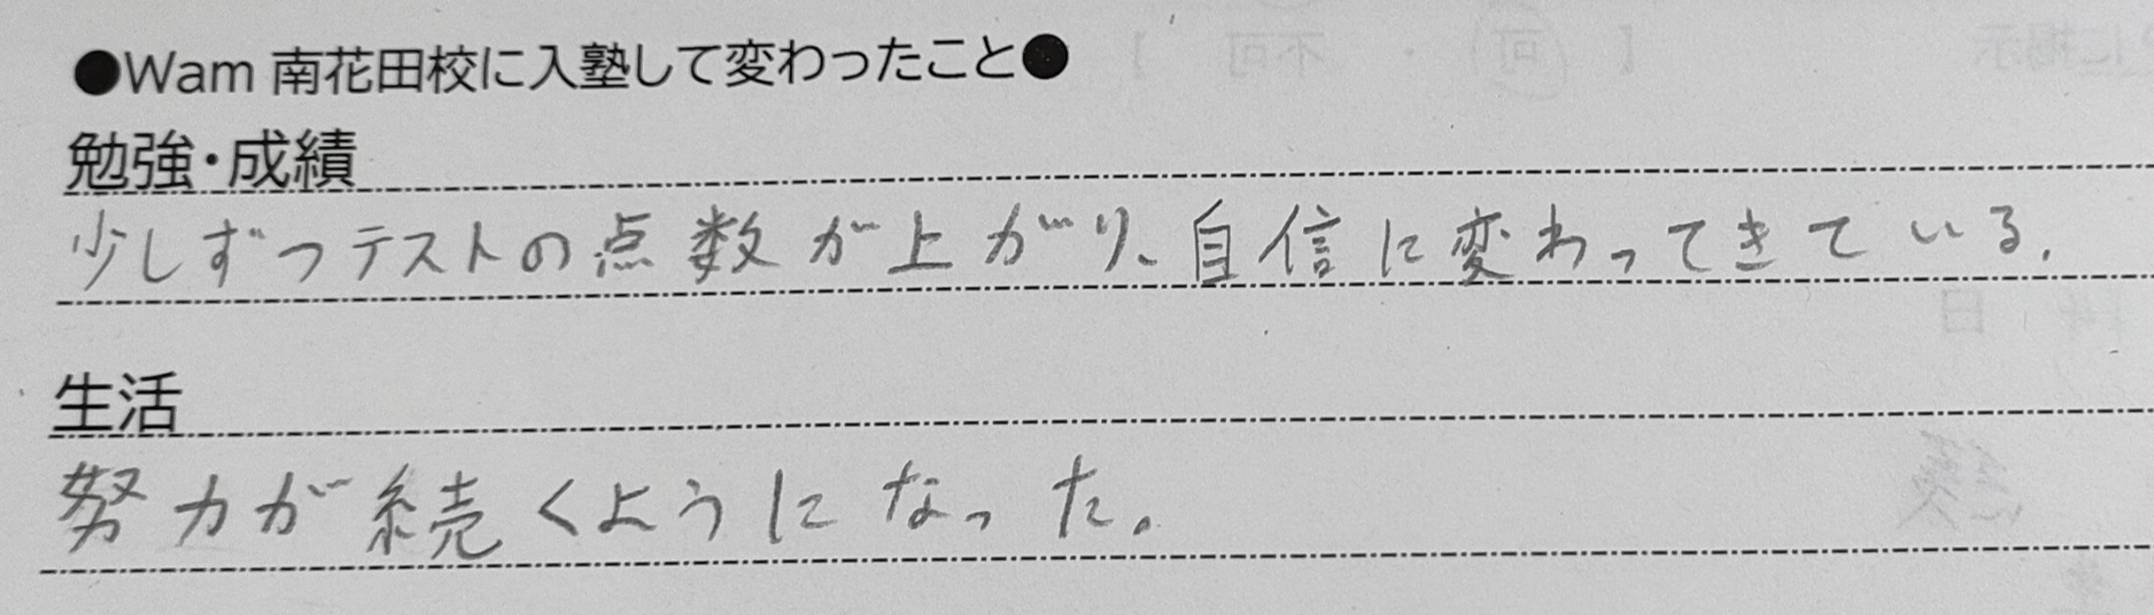 ●Wam 南花田校に入塾して変わったこと●
勉強・成績
少しずつテストの点数が上がり、自信に変わってきている.
生活
努力が続くようになった。